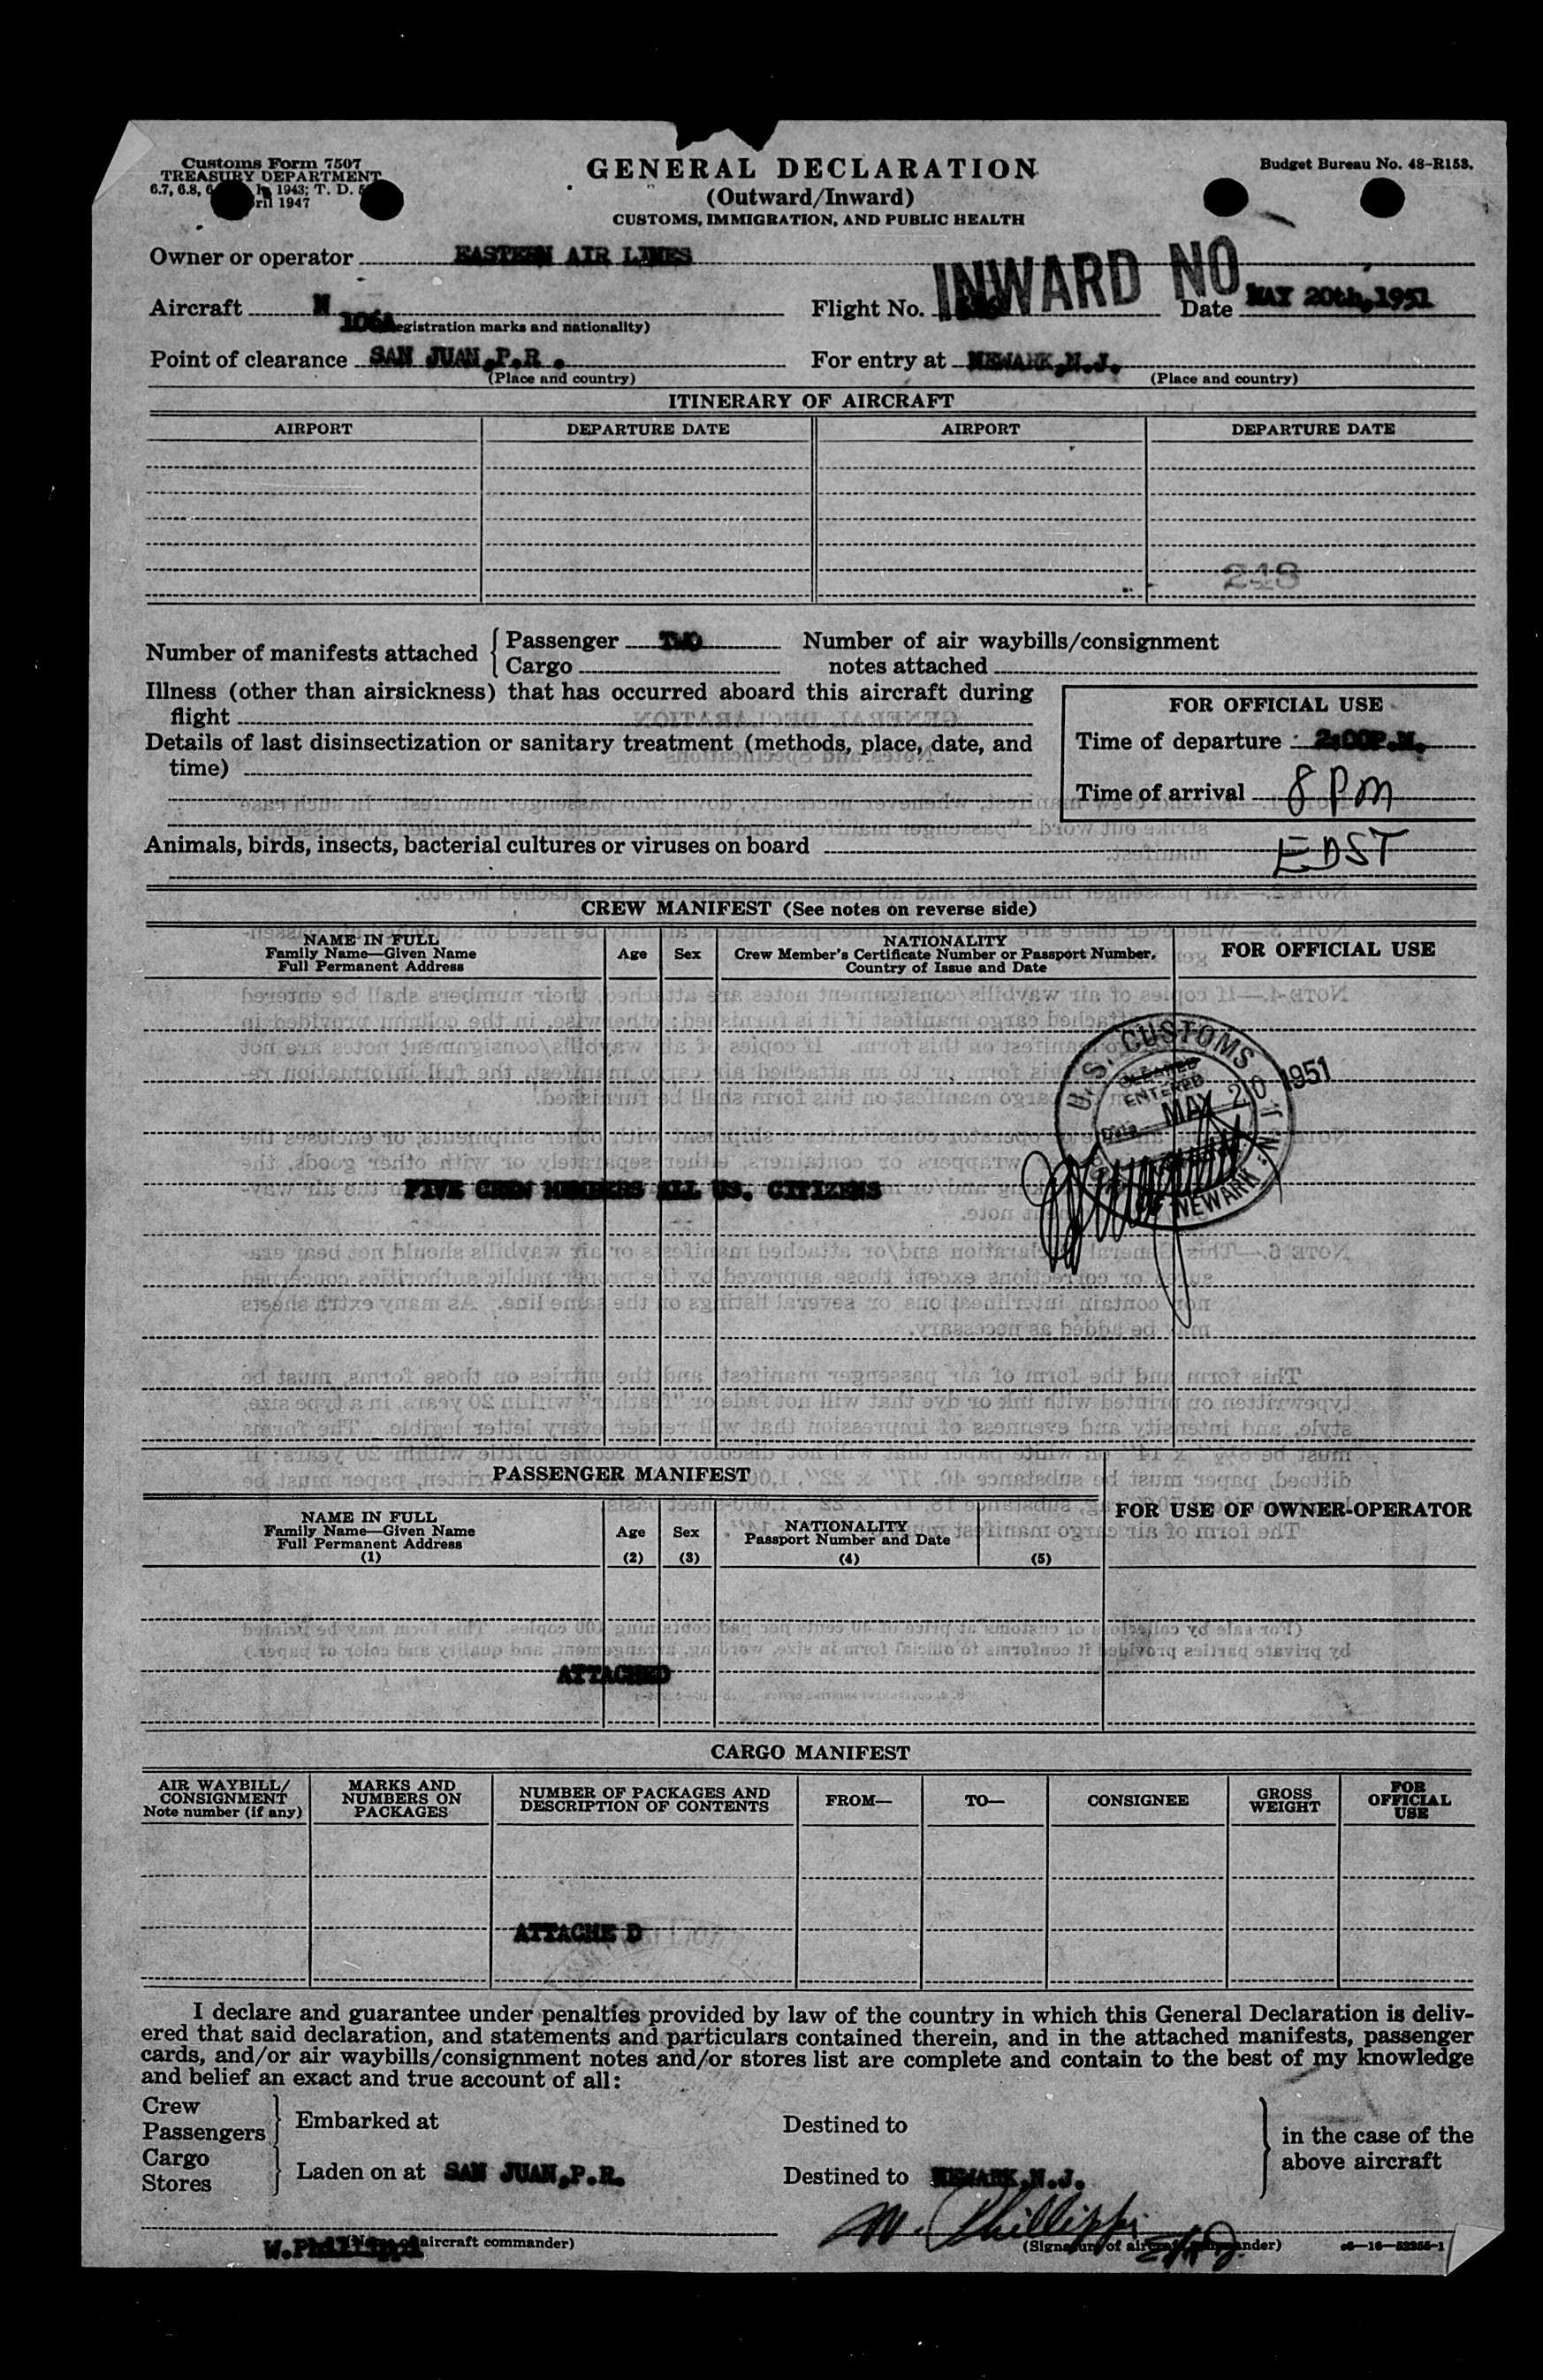 Customs Form 7507
TREASURY DEPARTMENT
6.7, 6.8, 1943; T. D.
1947
GENERAL DECLARATION
(Outward/Inward)
CUSTOMS, IMMIGRATION, AND PUBLIC HEALTH
Budget Bureau No. 48-R153.
Owner or operator EASTERN AIR LINES
INWARD NO
Aircraft N 106A Flight No. Date MAY 20th,1951
egistration marks and nationality)
Point of clearance SAN JUAN,P.R. For entry at NEWARK,N.J.
(Place and country) (Place and country)
ITINERARY OF AIRCRAFT
AIRPORT DEPARTURE DATE AIRPORT DEPARTURE DATE
248
Number of manifests attached Passenger TWO Number of air waybills/consignment
Cargo notes attached
Illness (other than airsickness) that has occurred aboard this aircraft during
flight
Details of last disinsectization or sanitary treatment (methods, place, date, and
time)
FOR OFFICIAL USE
Time of departure 2:00P.M.
Time of arrival 8 PM
EDST
Animals, birds, insects, bacterial cultures or viruses on board
CREW MANIFEST (See notes on reverse side)
NAME IN FULL
Family Name—Given Name
Full Permanent Address
Age
Sex
NATIONALITY
Crew Member's Certificate Number or Passport Number,
Country of Issue and Date
FOR OFFICIAL USE
U. S. CUSTOMS
CLEARED
ENTERED
Date MAY 20 1951
NEWARK N. J.
FIVE CREW MEMBERS ALL US. CITIZENS
PASSENGER MANIFEST
NAME IN FULL
Family Name—Given Name
Full Permanent Address
(1)
Age
(2)
Sex
(3)
NATIONALITY
Passport Number and Date
(4)
(5)
FOR USE OF OWNER-OPERATOR
ATTACHED
CARGO MANIFEST
AIR WAYBILL/
CONSIGNMENT
Note number (if any)
MARKS AND
NUMBERS ON
PACKAGES
NUMBER OF PACKAGES AND
DESCRIPTION OF CONTENTS
FROM—
TO—
CONSIGNEE
GROSS
WEIGHT
FOR
OFFICIAL
USE
ATTACHE D
I declare and guarantee under penalties provided by law of the country in which this General Declaration is deliv-
ered that said declaration, and statements and particulars contained therein, and in the attached manifests, passenger
cards, and/or air waybills/consignment notes and/or stores list are complete and contain to the best of my knowledge
and belief an exact and true account of all:
Crew
Passengers Embarked at Destined to
Cargo
Stores Laden on at SAN JUAN,P.R. Destined to NEWARK,N.J.
in the case of the
above aircraft
W. Phillippi
W.Phillippi aircraft commander)
(Signature of aircraft commander)